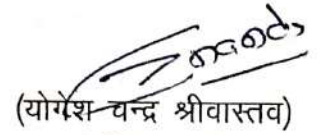 (योगेश चन्द्र श्रीवास्तव)